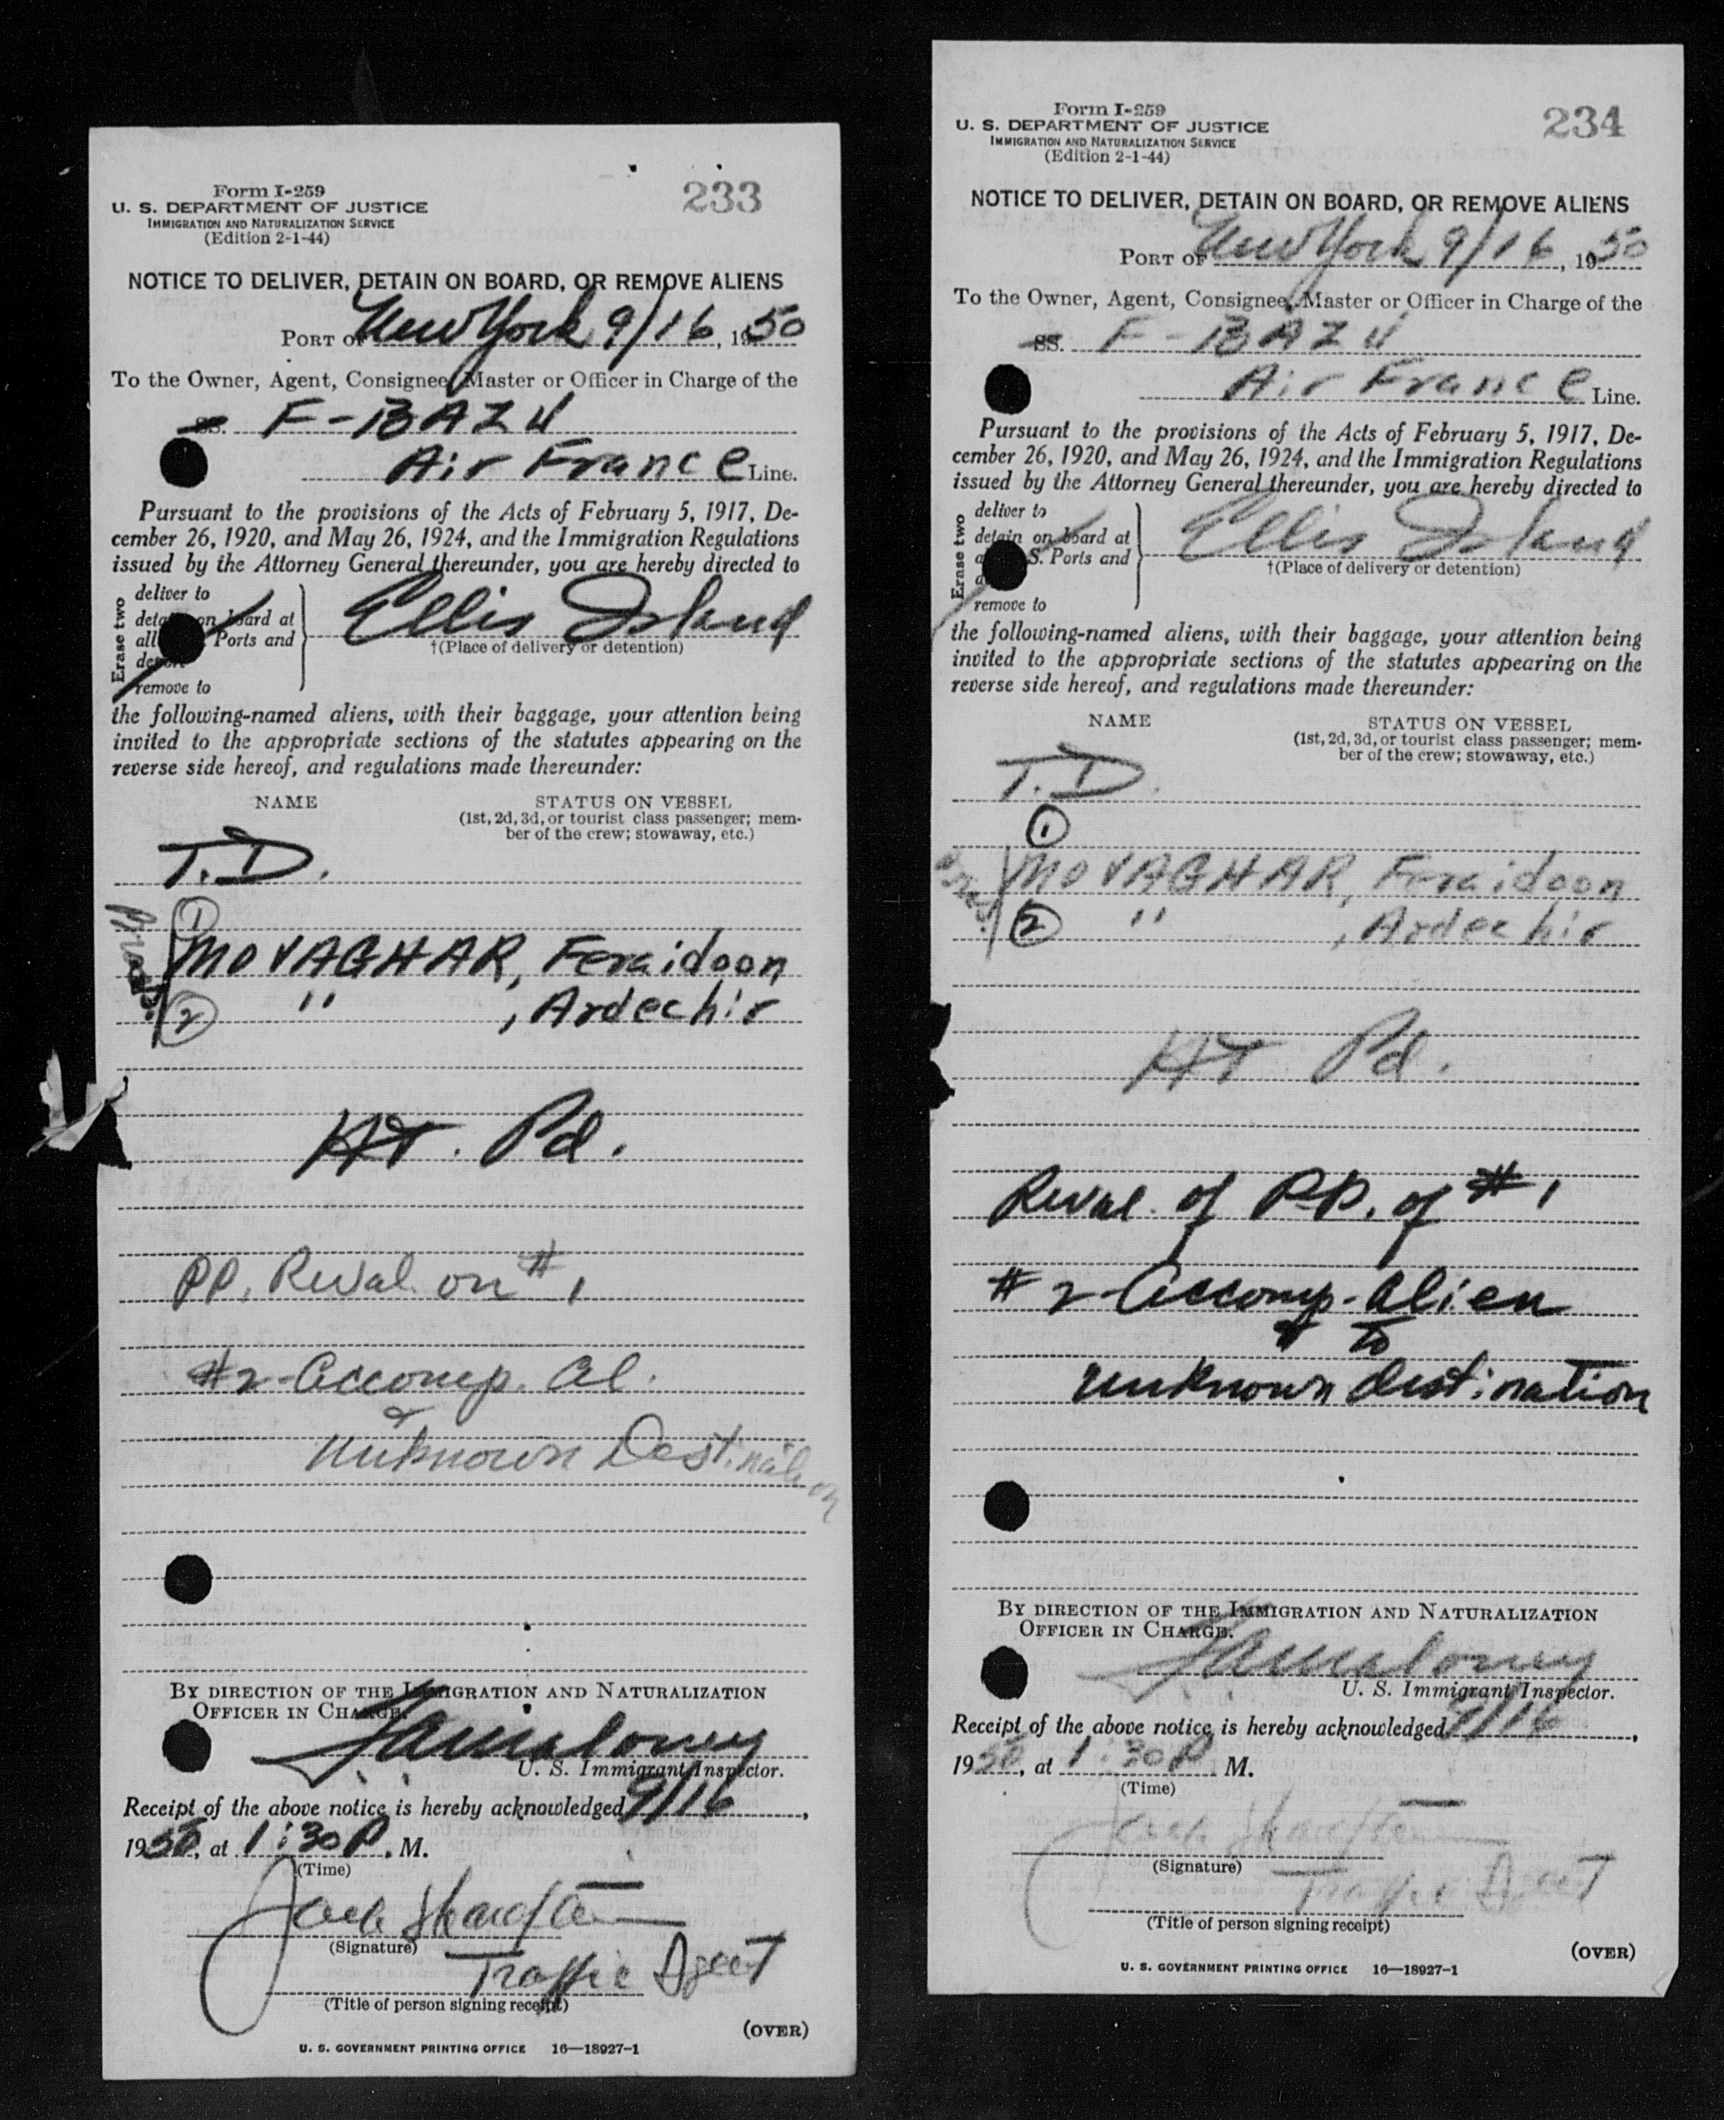 Form I-259
U. S. DEPARTMENT OF JUSTICE
IMMIGRATION AND NATURALIZATION SERVICE
(Edition 2-1-44)
233
NOTICE TO DELIVER, DETAIN ON BOARD, OR REMOVE ALIENS
PORT OF New York 9/16, 1950
To the Owner, Agent, Consignee, Master or Officer in Charge of the
SS. F-BAZU
Air France Line.
Pursuant to the provisions of the Acts of February 5, 1917, De-
cember 26, 1920, and May 26, 1924, and the Immigration Regulations
issued by the Attorney General thereunder, you are hereby directed to
Erase two
deliver to
detain on board at
all Ports and
remove to
Ellis Island
†(Place of delivery or detention)
the following-named aliens, with their baggage, your attention being
invited to the appropriate sections of the statutes appearing on the
reverse side hereof, and regulations made thereunder:
NAME STATUS ON VESSEL
(1st, 2d, 3d, or tourist class passenger; mem-
ber of the crew; stowaway, etc.)
T.D.
1
MOVAGHAR, Feraidoon
2 " , Ardechir
HT. Pd.
PP. Reval. on #1
#2-Accomp. al.
Unknown Destination
BY DIRECTION OF THE IMMIGRATION AND NATURALIZATION
OFFICER IN CHARGE.
U. S. Immigrant Inspector.
Receipt of the above notice is hereby acknowledged 9/16,
1950, at 1:30 P. M.
(Time)
Jack
(Signature)
Traffic Agent
(Title of person signing receipt)
(OVER)
U. S. GOVERNMENT PRINTING OFFICE 16—18927-1
Form I-259
U. S. DEPARTMENT OF JUSTICE
IMMIGRATION AND NATURALIZATION SERVICE
(Edition 2-1-44)
234
NOTICE TO DELIVER, DETAIN ON BOARD, OR REMOVE ALIENS
PORT OF New York 9/16, 1950
To the Owner, Agent, Consignee, Master or Officer in Charge of the
SS. F-BAZU
Air France Line.
Pursuant to the provisions of the Acts of February 5, 1917, De-
cember 26, 1920, and May 26, 1924, and the Immigration Regulations
issued by the Attorney General thereunder, you are hereby directed to
Erase two
deliver to
detain on board at
S. Ports and
remove to
Ellis Island
†(Place of delivery or detention)
the following-named aliens, with their baggage, your attention being
invited to the appropriate sections of the statutes appearing on the
reverse side hereof, and regulations made thereunder:
NAME STATUS ON VESSEL
(1st, 2d, 3d, or tourist class passenger; mem-
ber of the crew; stowaway, etc.)
T.D.
1
MOVAGHAR, Feraidoon
2 " , Ardechir
HT Pd.
Reval. of PP. of #1
#2-Accomp. alien
to
unknown destination
BY DIRECTION OF THE IMMIGRATION AND NATURALIZATION
OFFICER IN CHARGE.
U. S. Immigrant Inspector.
Receipt of the above notice is hereby acknowledged 9/16,
1950, at 1:30 P. M.
(Time)
Jack
(Signature)
Traffic Agent
(Title of person signing receipt)
(OVER)
U. S. GOVERNMENT PRINTING OFFICE 16—18927-1